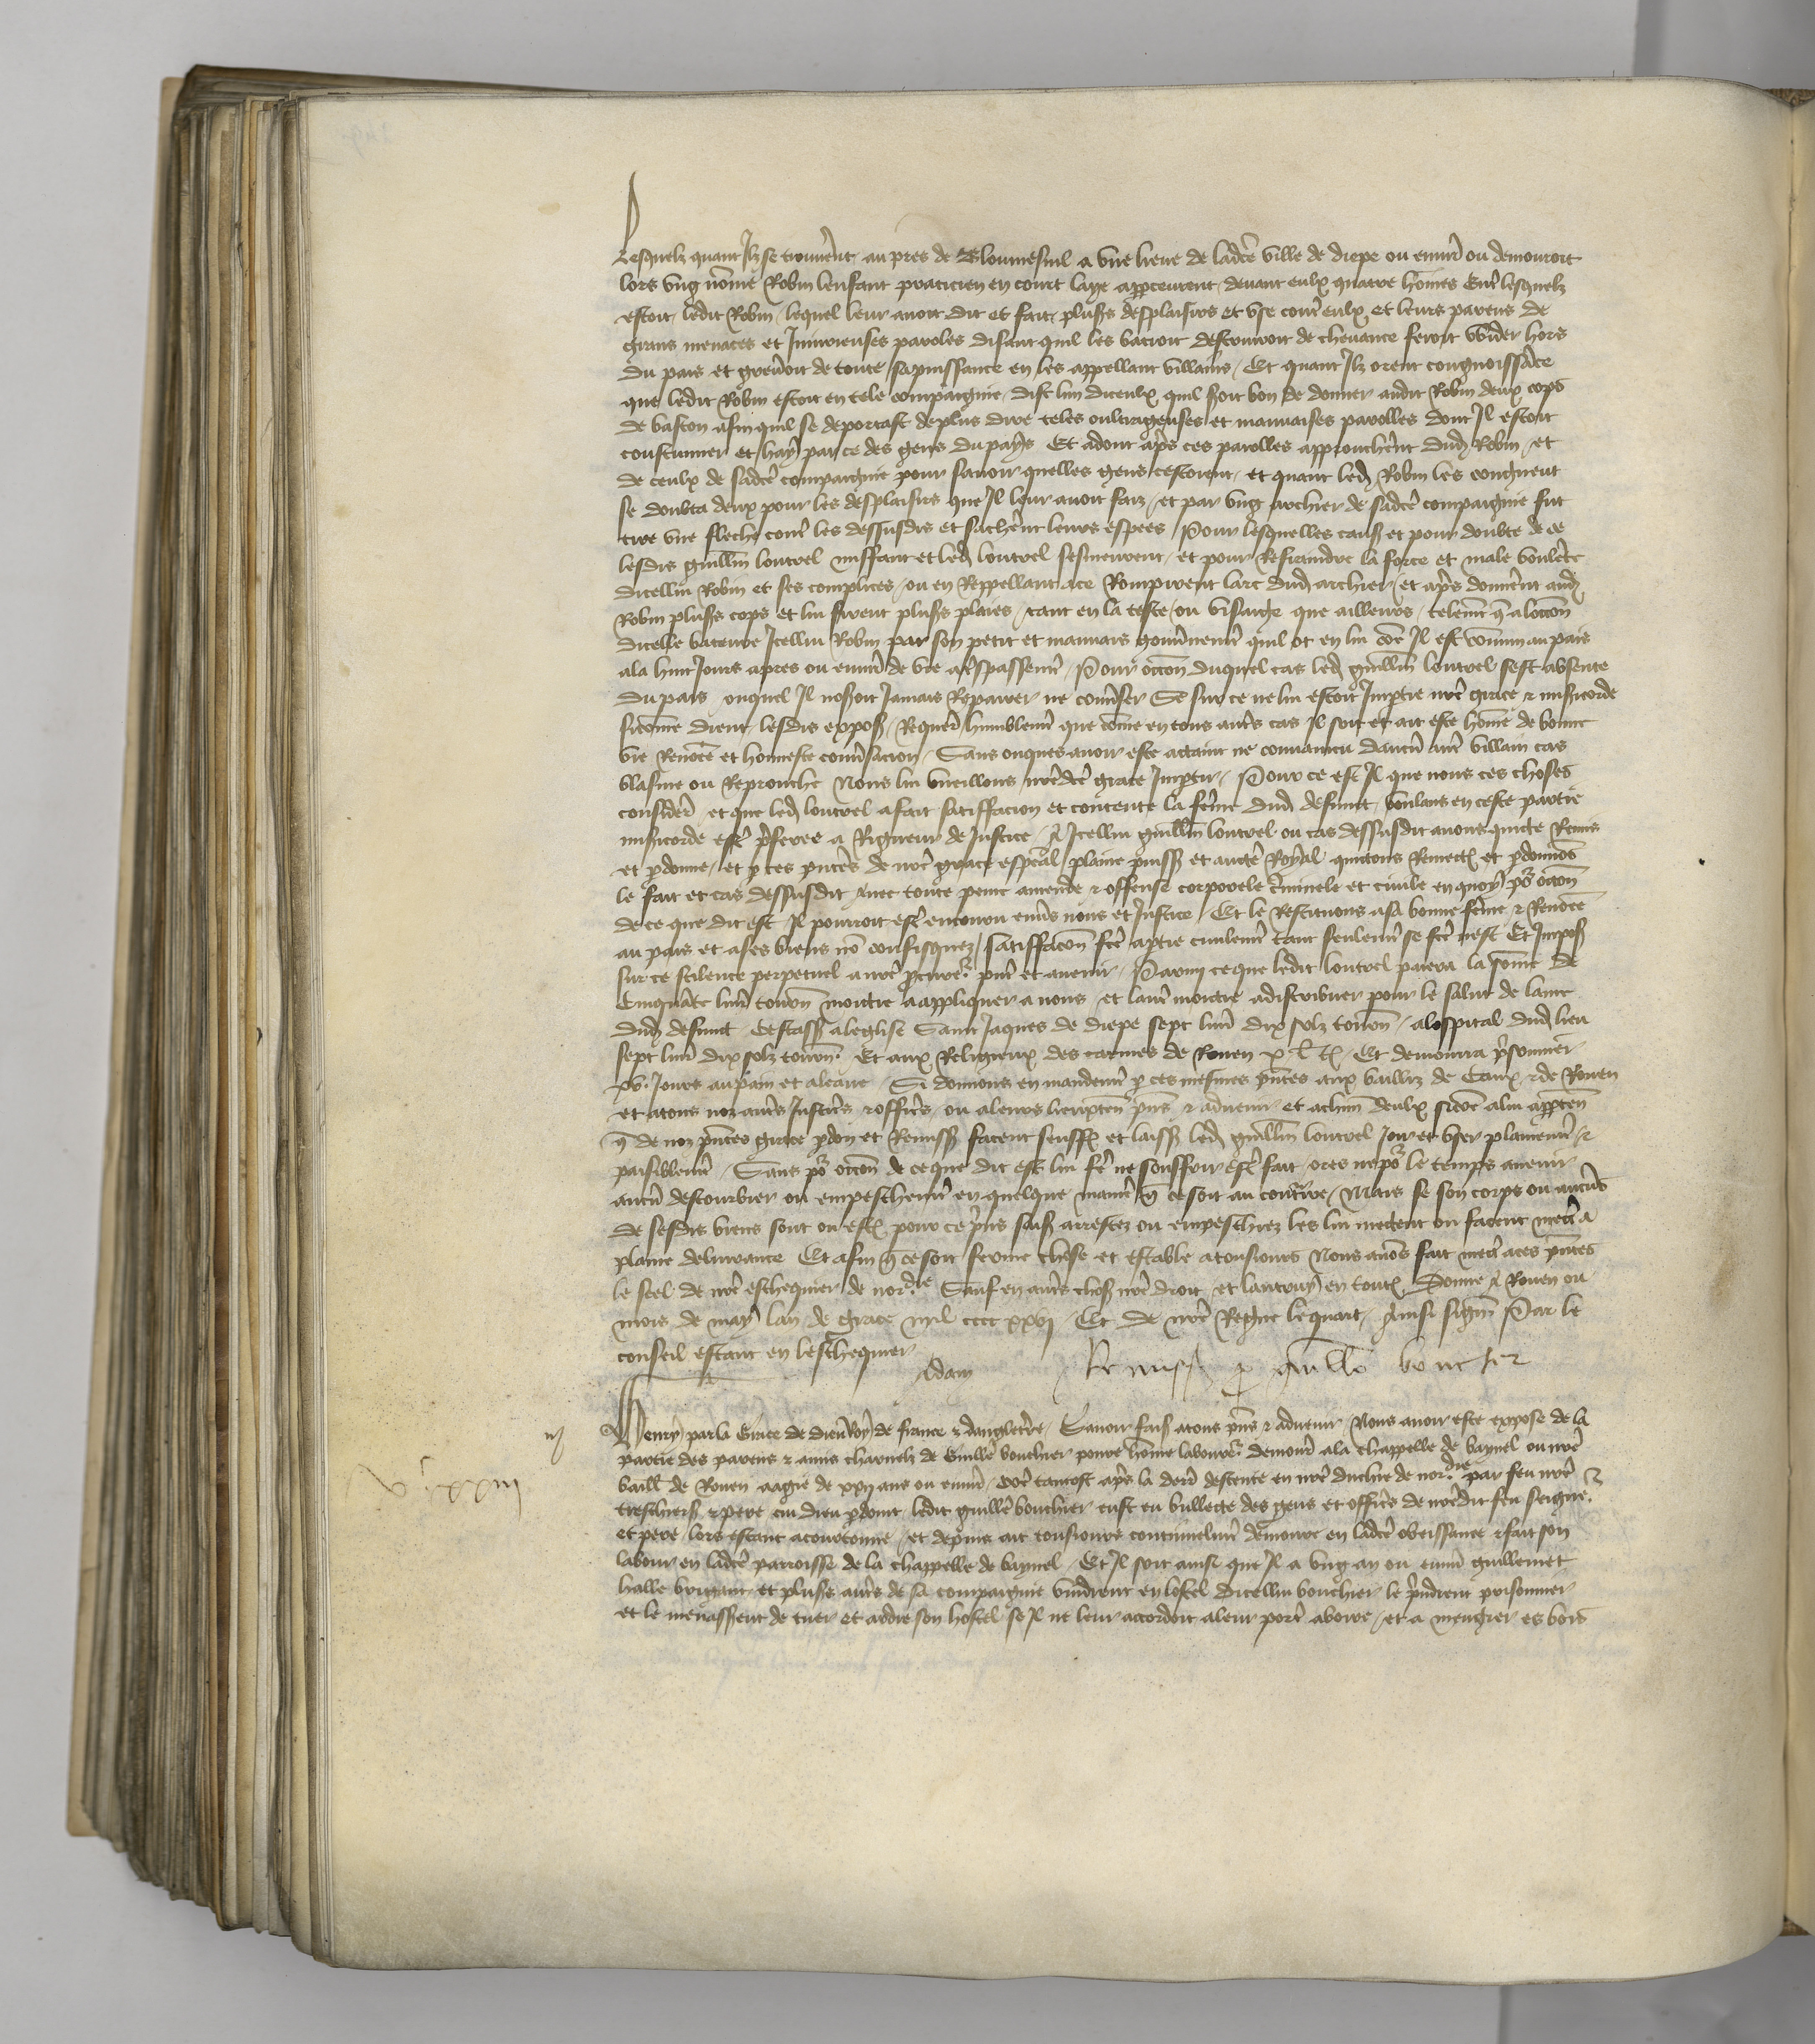 Lesquelz quant Ilz se trouverent au pres de Bloumesnil a une lieue de ladce ville de diepe ou envir ou demouroit
lors ung nome Robin lenfant praticien en court laye apperceurent devant eulx quatre homes Entr lesquelz
estoit ledit Robin lequel leur avoit dit et fait pluss desplaisirs et use contr eulx et leurs parens de
grans menaces et Iniurieuses paroles disant quil les batroit destruiroit de chevance feroit wider hors
du pais et greveroit de toute sa puissance en les appellant villains Et quant Ilz orent congnoissance
que ledit Robin estoit en tele compaignie dist lun diceulx quil seroit bon de donner audit Robin deux cops
de baston afin quil se deportast de plus dire teles oultrageuses et mauvaises parolles dont Il estoit
coustumier et hay par ce des gens du pays Et adont aprs ces parolles approucherent dud Robin et
de ceulx de sadce compaignie pour savoir quelles gens cestoient et quant led Robin les congneut
se doubta deux pour les desplaisirs que Il leur avoit faiz et par ung archier de sadce compaignie fut
tire une fleche contr les dessusdis et sacherent leurs espees Pour lesquelles caus et pour doubte de ce
lesdis guillm louvel et led louvel sesmeurent et pour Refraindre la force et male voulente
dicellui Robin et ses complices ou en Reppellant ace Rompirent larc dud archier et aprs donnerent aud
Robin pluss cops et lui firent pluss plaies tant en la teste ou visaige que ailleurs telemt q a loccon
dicelle bateure Icellui Robin par son petit et mauvais gouvernemt quil ot en lui coe Il est comun au pais
ala huit Jours apres ou envir de vie a trespassemt Pour occon duquel cas led guillm louvel sest absente
du pais ouquel Il noseroit Jamais Repairer ne converser Se sur ce ne lui estoit Impartie nre grace & misericorde
sicome dient lesdis expos Requers humblemt que come en tous autrs cas Il soit et ait este home de bonne
vie Renomee et honneste conversacion Sans onques avoir este attaint ne convaincu daucun autr villain cas
blasme ou Reprouche Nous lui vueillons nre dce grace Impartir Pour ce est Il que nous ces choses
considere et que led louvel a fait satiffacion et contente la feme dud defunct voulans en ceste partie
misericorde estre preferee a Rigueur de Justice A Icellui guillm louvel ou cas dessusdit avons quicte Remis
et pdonne et p ces pntes de nre grace especal plaine puiss et aucte Royal quictons Remectons et pdonnos
le fait et cas dessusdit Avec toute peine amende & offense corporele criminele et civile en quoy pr occon
de ce que dit est Il pourroit estre encouru envs nous et Justice Et le Restituons a sa bonne feme & Renomee
au pais et a ses biens no confisquez satiffacon fce a ptie civilemt tant seulemt se fce nest Et Impos
sur ce scilence perpetuel a nre procureur pnt et avenir Parmy ce que ledit louvel paiera la some de
Cinquante livr tournois moictie a appliquer a nous et lautr moictie a distribuer pour le salut de lame
dud defunct Cestass a leglise Saint Jaques de diepe sept livr dix solz tournois a lospital dud lieu
sept livr dix solz tournois Et aux Religieux des carmes de Rouen x l t Et demourra prisonnier
xv Jours au pain et a leaue Si donnons en mandemt p ces mesmes pntes aux bailliz de Caux & de Rouen
et a tous noz autrs Justicrs & officrs ou a leurs lieuxten pns & advenir et a chun deulx sicoe a lui apperten
q de noz pntes grace pdon et Remiss facent seuffrent et laiss led guillm louvel Joir et user plainemt &
paisiblemt Sans pr occon de ce que dit est lui fe ne souffrir estre fait ores ne pr le temps avenir
aucun destourbier ou empeschemt en quelque manie q ce soit au contraire Mais se son corps ou aucuns
de sesdis biens sont ou estoient pour ce prins saisis arrestez ou empeschiez les lui mectent ou facent mectre a
plaine delivrance Et afin q ce soit ferme chose et estable a tousiours Nous avos fait mectre a ces pntes
le scel de nre eschequier de nordie Sauf en autrs choss nre droit et lautruy en toutes Donne A Rouen ou
mois de may lan de grace mil cccc xxvj Et de nre Regne le quart Ainsi signe Par le
conseil estant en leschequier
Adam Remiss p guillo bouchier
Henry par la Grace de dieu Roy de france & dangleterre Savoir fais a tous pns & advenir Nous avoir este expose de la
partie des parens & amis charnelz de Guille bouchier povre home laboureur demour a la chappelle de baynel ou nre
baill de Rouen aagie de xxij ans ou envir coe tantost aprs la derre descente en nre duchie de nordie par feu nre
treschiers & pere cui dieu pdoint ledit guille bouchier eust eu bullecte des gens et officrs de nredit feu seigneur &
et pere lors estant acourtonne et depuis ait tousiours continuelmt demoure en ladce obeissance & fait son
labour en ladce parroisse de la chappelle de baynel Et Il soit ainsi que Il a ung an ou envir guillemet
halle brigant et pluss autrs de sa compaignie vindrent en lostel dicellui bouchier le prindrent prisonnier
et le menassrent de tuer et ardre son hostel se Il ne leur accordoit a leur porter a boire et a mengier es bois